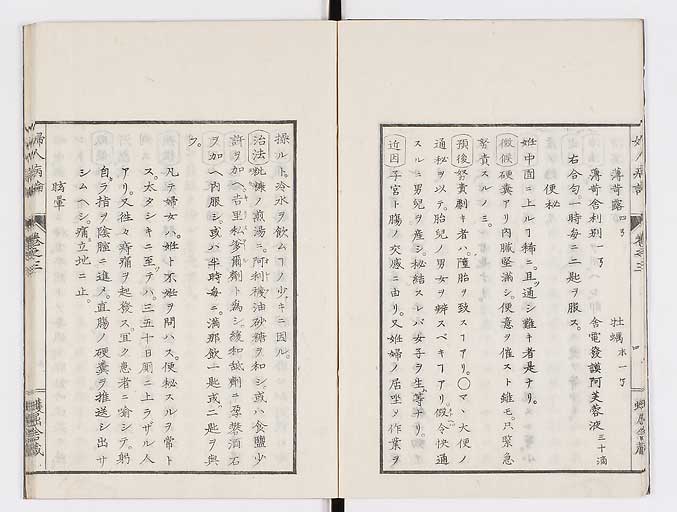 薄苛露 四弓
牡蠣 ホ一丁
薄苛舎利別 一弓
舎電發謨阿芙蓉液 三十滴
右合匀。一時毎ニ二匙ヲ服ス。
便秘
姙中圊ニ上ルヿ稀ニ。且ツ通シ難キ者是ナリ。
徴候 硬糞アリ内臓堅滿シ。便意ヲ催スト雖モ。只緊急
怒責スルノミ。
預後 怒責劇キ者ハ。墮胎ヲ致スヿアリ。○マヽ大便ノ
通秘ヲ以テ。胎兒ノ男女ヲ辨スベキヿアリ。假令快通
スルニ男兒ヲ産シ。秘結スレバ女子ヲ生ム等ナリ。
近因 子宮ト腸ノ交感ニ由リ。又姙婦ノ居坐シ作業ヲ
操ルト。冷水ヲ飲ムヿノ少キニ因ル。
治法 亜麻ノ煎湯ニ。阿利襪油砂糖ヲ和シ。或ハ食鹽少
許ヲ加ヘ。吉里私爹爾劑ト為シ。緩和舐劑ニ。孕礬酒石
ヲ加ヘ内服シ。或ハ半時毎ニ。滿那飲一匙或ハ二匙ヲ與
フ。
凡テ婦女ハ。姙ト不姙ヲ問ハス。便秘スルヲ常ト
ス。太タシキニ至テハ。三五十日厠ニ上ラザル人
アリ。又往々疼痛ヲ起發ス。宜ク患者ニ喩シテ。躬
自ラ指ヲ陰腟ニ進メ。直腸ノ硬糞ヲ推送シ出サ
シムヘシ。痛立地ニ止。
眩暈
婦人病論
卷之三